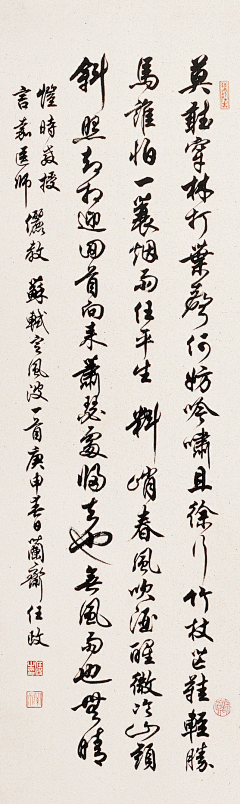 莫聽穿林打葉聲何妨吟嘯且徐行竹杖芒鞋輕勝
馬誰怕一蓑烟雨任平生 料峭春風吹酒醒微冷山頭
斜照却相迎回首向來蕭瑟處歸去也無風雨也無晴
愷時教授
言 医師 儷教 蘇軾定風波一首庚申春日蘭齋任政